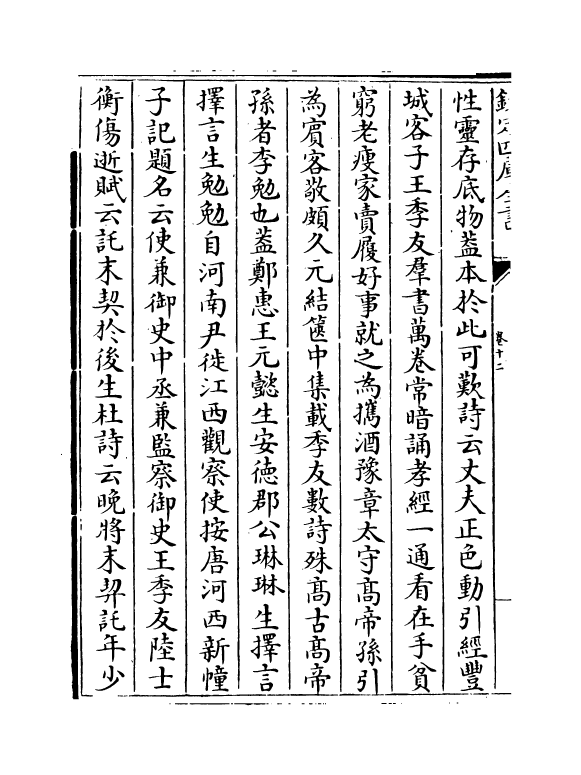 欽定四庫全書
卷十二
性靈存底物葢本於此可歎詩云丈夫正色動引經豐
城客子王季友羣書萬卷常暗誦孝經一通看在手貧
窮老瘦家賣屐好事就之為攜酒豫章太守髙帝孫引
為賓客敬頗久元結篋中集載季友數詩殊髙古髙帝
孫者李勉也葢鄭惠王元懿生安徳郡公琳琳生擇言
擇言生勉勉自河南尹徙江西觀察使按唐河西新幢
子記題名云使兼御史中丞兼監察御史王季友陸士
衡傷逝賦云託末契於後生杜詩云晚將末契託年少